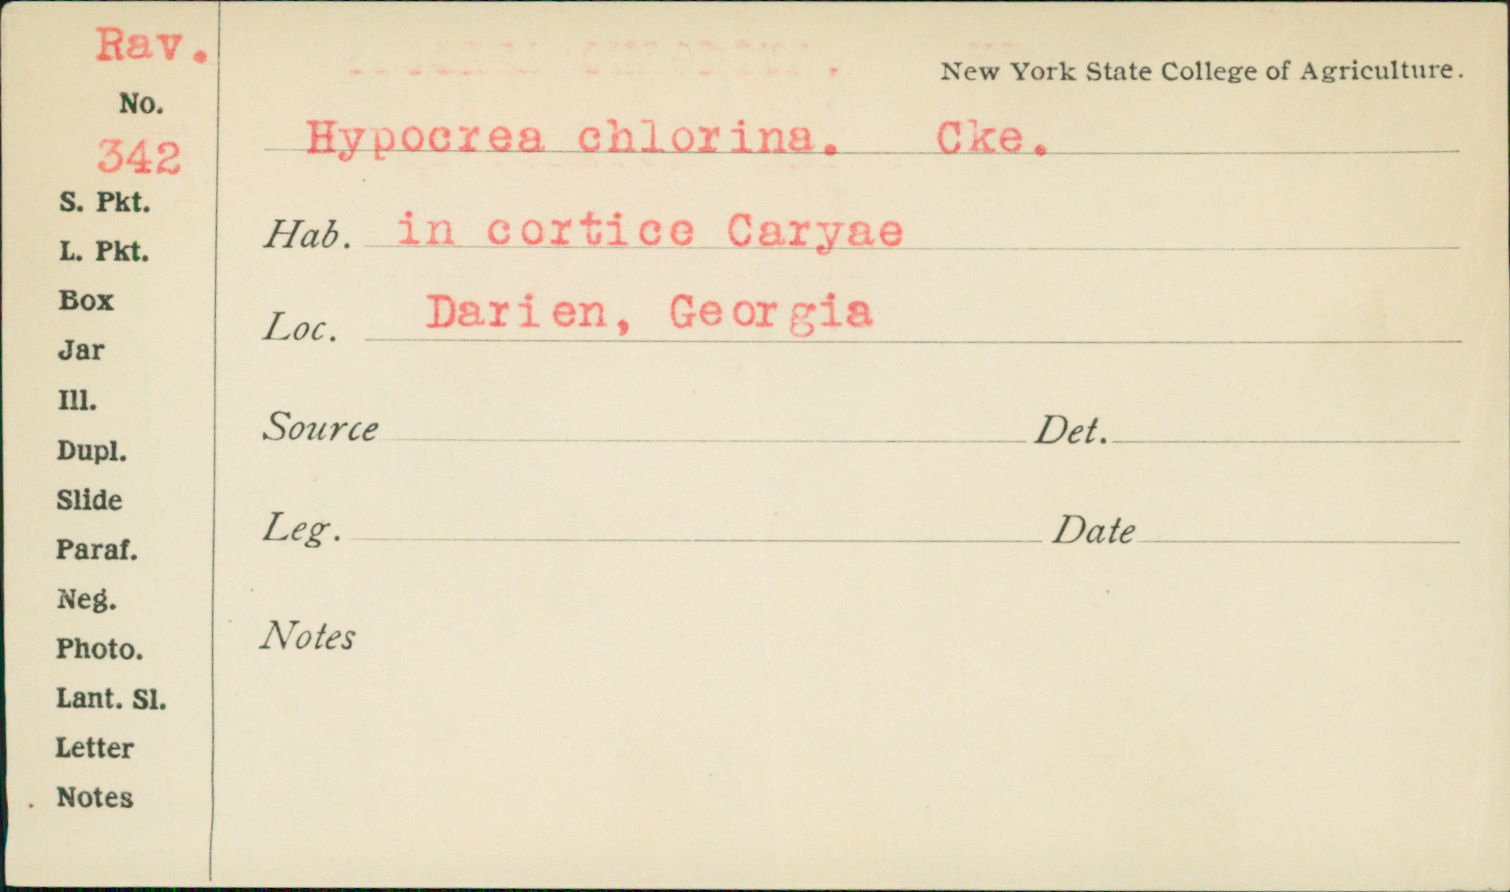 Rav.
No.
342
S. Pkt.
L. Pkt.
Box
Jar
Ill.
Dupl.
Slide
Paraf.
Neg.
Photo.
Lant. Sl.
Letter
Notes
New York State College of Agriculture.
Hypocrea chlorina. Cke.
Hab. in cortice Caryae
Loc. Darien, Georgia
Source Det.
Leg. Date
Notes